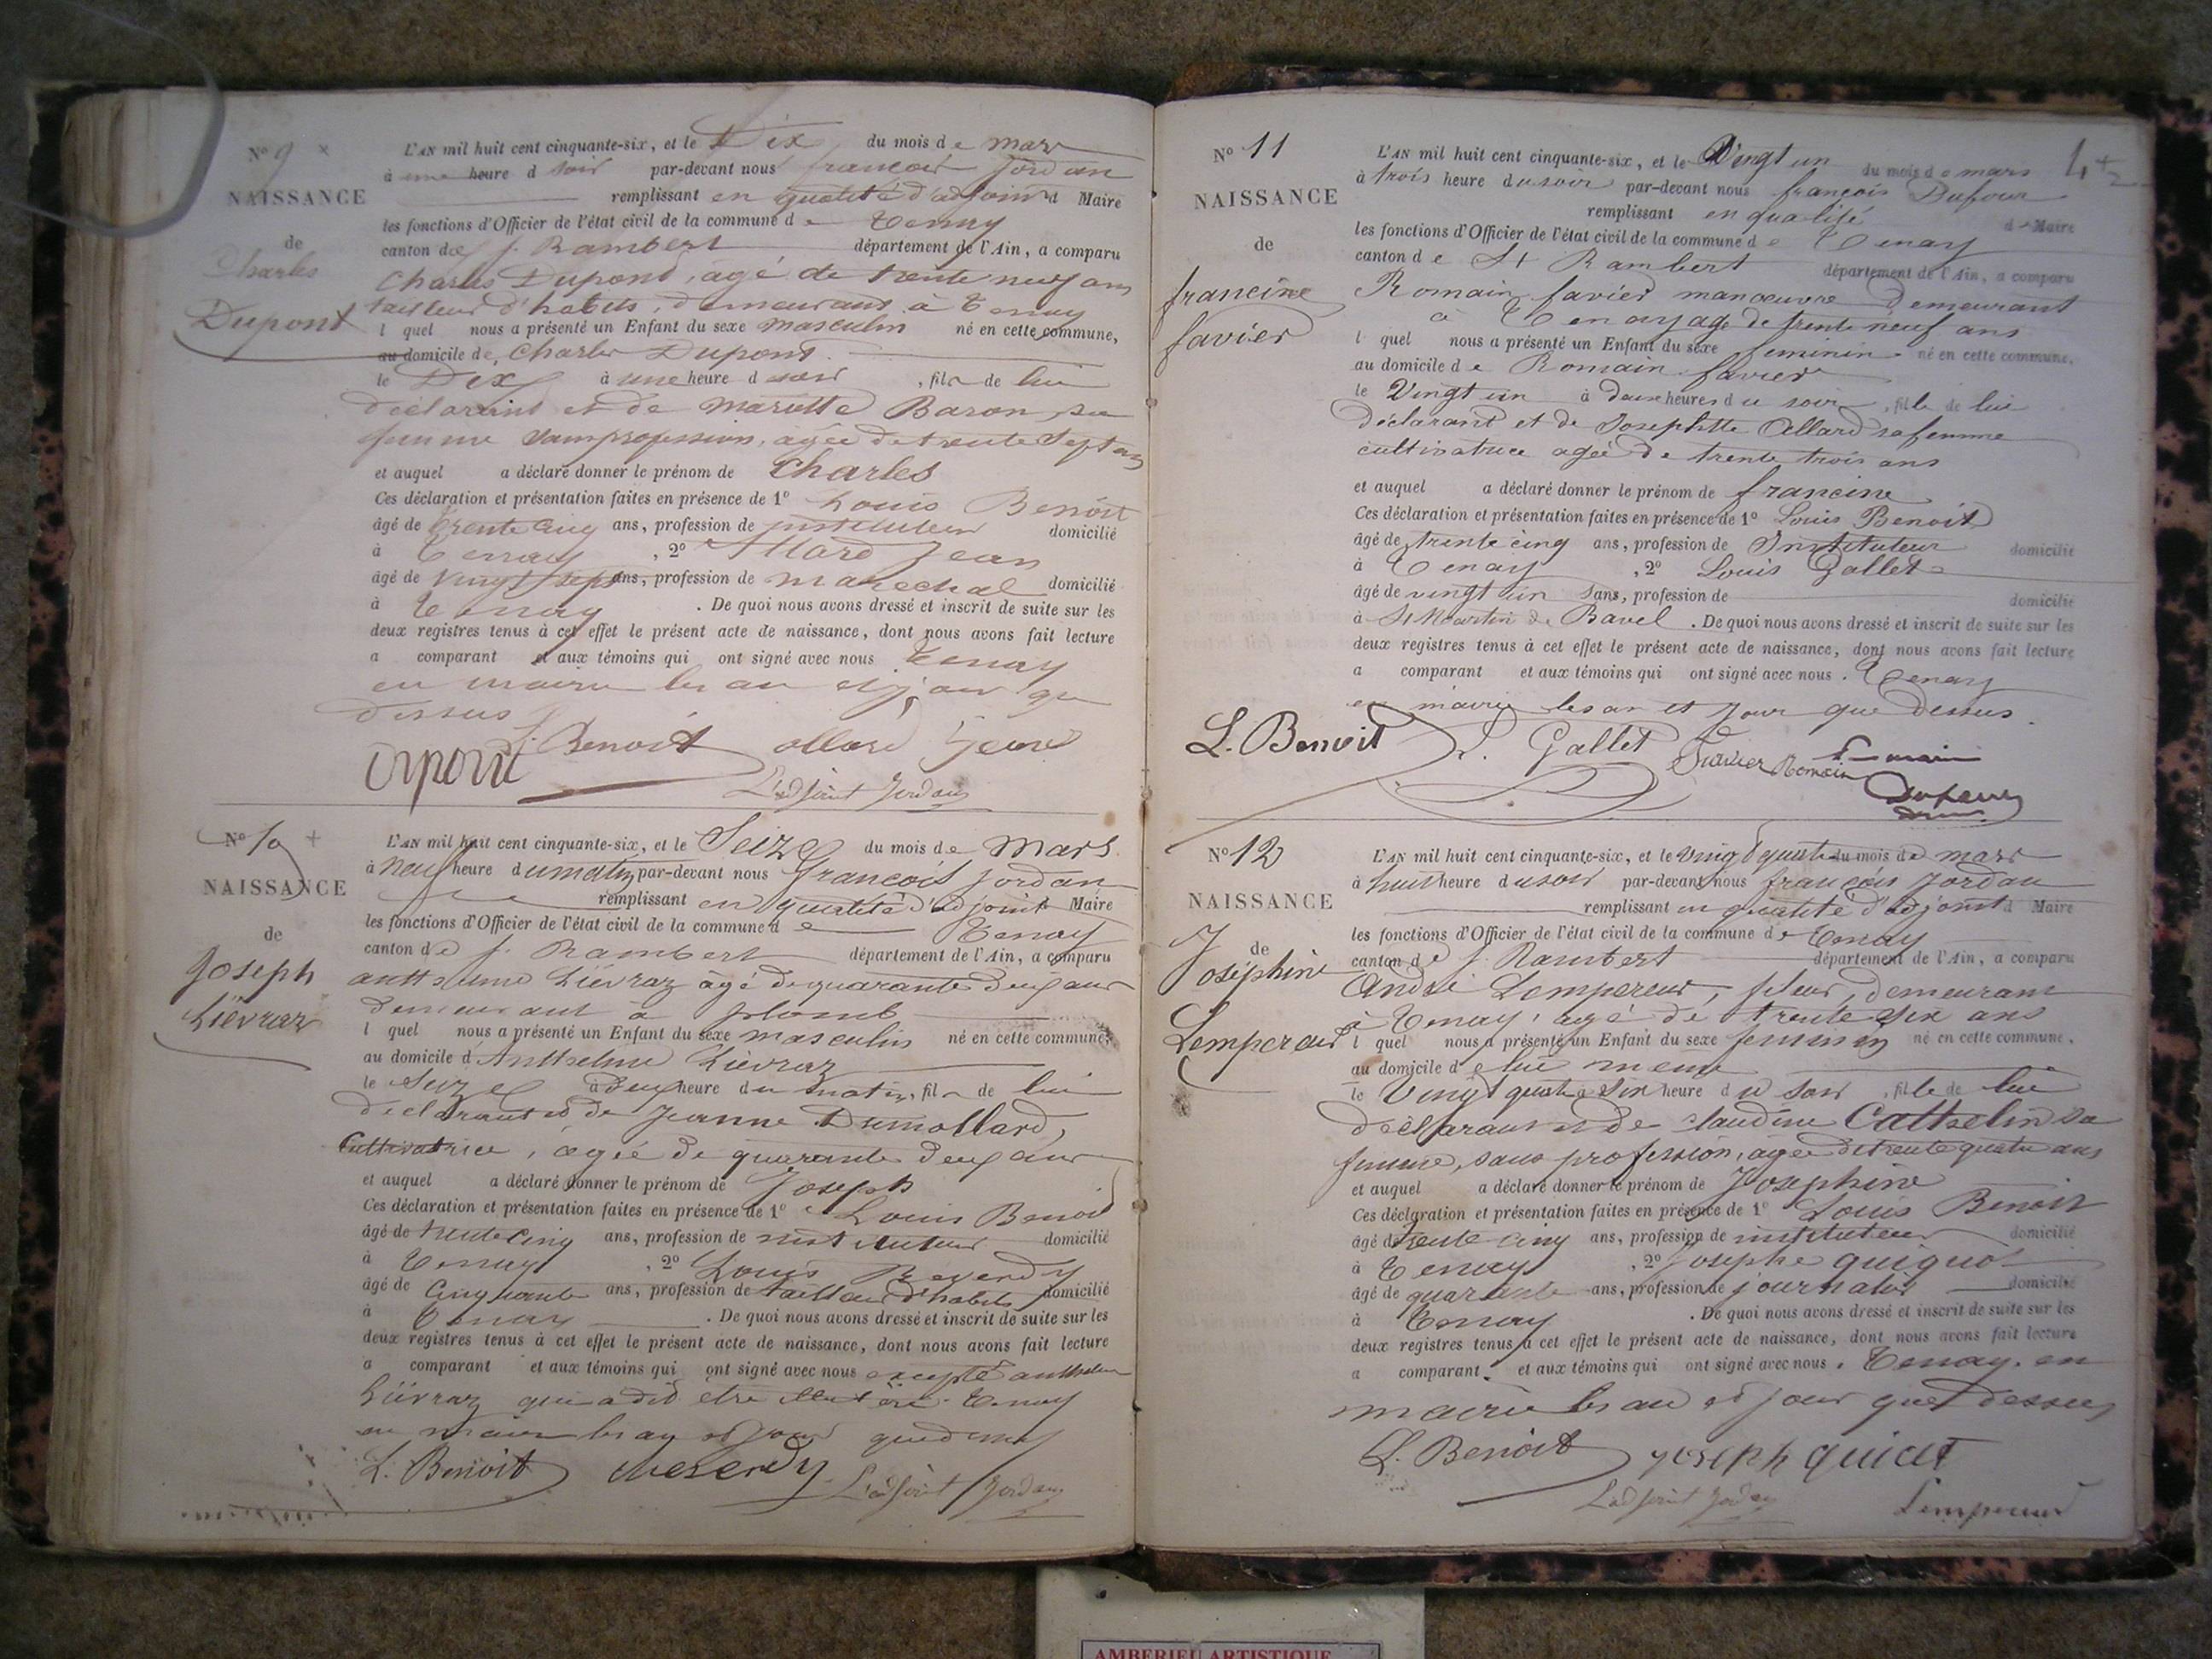 No 9 x
NAISSANCE
de
Charles
Dupont
L'AN mil huit cent cinquante-six, et le Dix du mois de mars
à une heure d soir par-devant nous francois Jordan
remplissant en qualité d'adjoint d Maire
les fonctions d'Officier de l'état civil de la commune de Tenay
canton de St Rambert département de l'Ain, a comparu
Charles Dupont, agé de trente neuf ans
tailleur d'habits, demeurant à Tenay
l quel nous a présenté un Enfant du sexe masculin né en cette commune,
au domicile de Charles Dupont
le Dix à une heure d soir, fils de lui
déclarant et de Mariette Baron sa
femme sans profession, agée de trente sept ans
et auquel a déclaré donner le prénom de Charles
Ces déclaration et présentation faites en présence de 1º Louis Benoit
âgé de trente cinq ans, profession de instituteur domicilié
à Tenay, 2º Allard Jean
âgé de vingt sept ans, profession de marechal domicilié
à Tenay. De quoi nous avons dressé et inscrit de suite sur les
deux registres tenus à cet effet le présent acte de naissance, dont nous avons fait lecture
a comparant et aux témoins qui ont signé avec nous Tenay
en mairie les an et jour que
dessus
L. Benoit allard Jean
Dupont
L'adjoint Jordan
No 10 +
NAISSANCE
de
Joseph
Liévraz
L'AN mil huit cent cinquante-six, et le Seize du mois de Mars
à neuf heure du matin par-devant nous francois Jordan
remplissant en qualité d'adjoint Maire
les fonctions d'Officier de l'état civil de la commune de Tenay
canton de St Rambert département de l'Ain, a comparu
Anthelme Liévraz âgé de quarante deux ans
demeurant à plomb
l quel nous a présenté un Enfant du sexe masculin né en cette commune,
au domicile d'Anthelme Liévraz
le Seize à deux heure du matin, fils de lui
déclarant et de Jeanne Dumollard,
Cultivatrice, agée de quarante deux ans
et auquel a déclaré donner le prénom de Joseph
Ces déclaration et présentation faites en présence de 1º Louis Benoit
âgé de trente cinq ans, profession de instituteur domicilié
à Tenay, 2º Louis Reverdy
âgé de Cinquante ans, profession de tailleur d'habits domicilié
à Tenay. De quoi nous avons dressé et inscrit de suite sur les
deux registres tenus à cet effet le présent acte de naissance, dont nous avons fait lecture
a comparant et aux témoins qui ont signé avec nous excepté anthelme
Liévraz qui a dit etre Tenay
en mairie les an et jour que dessus
L. Benoit Reverdy L'adjoint Jordan
No 11
NAISSANCE
de
francine
favier
L'AN mil huit cent cinquante-six, et le Vingt un du mois de mars
à trois heure du soir par-devant nous françois Dufour
remplissant en qualité de Maire
les fonctions d'Officier de l'état civil de la commune de Tenay
canton de St Rambert département de l'Ain, a comparu
Romain favier manoeuvre demeurant
à Tenay agé de trente neuf ans
l quel nous a présenté un Enfant du sexe feminin né en cette commune,
au domicile de Romain favier
le Vingt un à deux heures du soir, fille de lui
Déclarant et de Josephtte Allard sa femme
cultivatrice agée de trente trois ans
et auquel a déclaré donner le prénom de francine
Ces déclaration et présentation faites en présence de 1º Louis Benoit
âgé de trente cinq ans, profession de Instituteur domicilié
à Tenay, 2º Louis Gallet
âgé de vingt un ans, profession de domicilié
à St Martin de Bavel. De quoi nous avons dressé et inscrit de suite sur les
deux registres tenus à cet effet le présent acte de naissance, dont nous avons fait lecture
a comparant et aux témoins qui ont signé avec nous. Tenay
en mairie les an et jour que dessus.
L. Benoit L. Gallet Favier Romain Le maire
Dufour
No 12
NAISSANCE
de
Joséphine
Lempereur
L'AN mil huit cent cinquante-six, et le vingt quatre du mois de mars
à huit heure du soir par-devant nous francois Jordan
remplissant en qualité d'adjoint d Maire
les fonctions d'Officier de l'état civil de la commune de Tenay
canton de St Rambert département de l'Ain, a comparu
André Lempereur, fileur, demeurant
à Tenay, agé de trente six ans
l quel nous a présenté un Enfant du sexe feminin né en cette commune,
au domicile de lui meme
le Vingt quatre à six heure du soir, fille de lui
déclarant et de Claudine Cathelin sa
femme, sans profession, agée de trente quatre ans
et auquel a déclaré donner le prénom de Joséphine
Ces déclaration et présentation faites en présence de 1º Louis Benoit
âgé de trente cinq ans, profession de instituteur domicilié
à Tenay, 2º Josephe quiquet
âgé de quarante ans, profession de journalier domicilié
à Tenay. De quoi nous avons dressé et inscrit de suite sur les
deux registres tenus à cet effet le présent acte de naissance, dont nous avons fait lecture
a comparant et aux témoins qui ont signé avec nous. Tenay, en
mairie les an et jour que dessus
L. Benoit Joseph quicet
L'adjoint Jordan Lempereur
AMBERIEU ARTISTIQUE